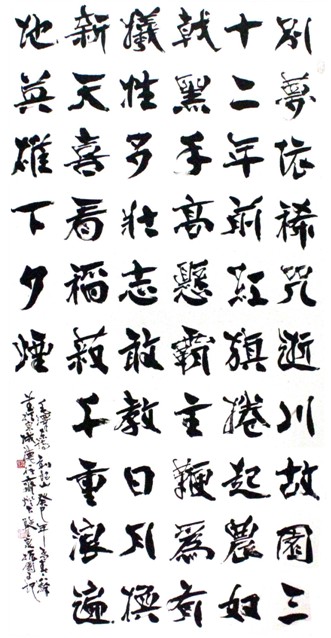 別夢依稀咒逝川故園三
十二年前紅旗捲起農奴
戟黑手高懸霸主鞭為有
犧牲多壯志敢教日月換
新天喜看稻菽千重浪遍
地英雄下夕煙